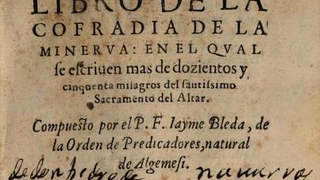 LIBRO DE LA
COFRADIA DE LA
MINERVA: EN EL QVAL
se escriuen mas de dozientos y
cinquenta milagros del santissimo
Sacramento del Altar.
Compuesto por el P. F. Iayme Bleda, de
la Orden de Predicadores, natural
de Algemesi.
de don pedro de navarra